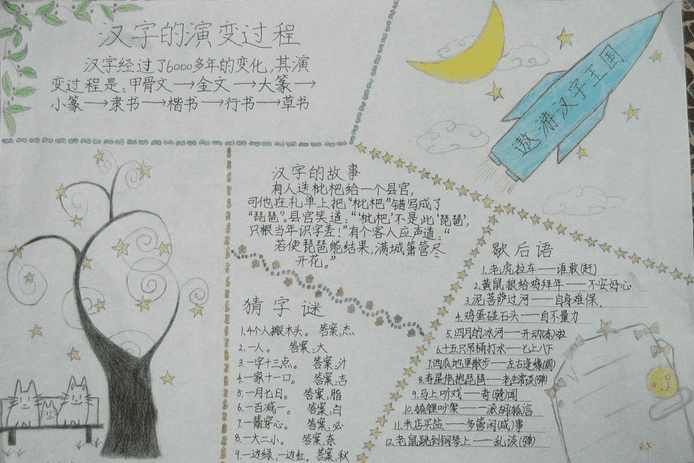 汉字的演变过程
汉字经过了6000多年的变化，其演
变过程是：甲骨文→金文→大篆→
小篆→隶书→楷书→行书→草书
遨游汉字王国
汉字的故事
有人送枇杷给一个县官，
可他在礼单上把“枇杷”错写成了
“琵琶”。县官笑道：“‘枇杷’不是此‘琵琶’，
只恨当年识字差！”有个客人应声道：“
若使琵琶能结果，满城箫管尽
开花。”
猜字谜
1.4个人搬木头。 答案：杰
2.一人。 答案：大
3.一字十三点。 答案：汁
4.一家十一口。 答案：吉
5.一月七日。 答案：脂
6.一百减一。 答案：白
7.一箭穿心。 答案：必
8.一大二小。 答案：奈
9.一边绿，一边红。答案：秋
歇后语
1.老虎拉车——谁敢(赶)
2.黄鼠狼给鸡拜年——不安好心
3.泥菩萨过河——自身难保、
4.鸡蛋碰石头——自不量力
5.四月的冰河——开动(冻)啦
6.十五只吊桶打水——七上八下
7.西瓜地里散步——左右逢缘(圆)
8.寿星抱琵琶——老生常谈(弹)
9.马上听戏——奇(骑)闻
10.狐狸吵架——一派胡(狐)言
11.米店买盐——多管闲(咸)事
12.老鼠跳到钢琴上——乱谈(弹)